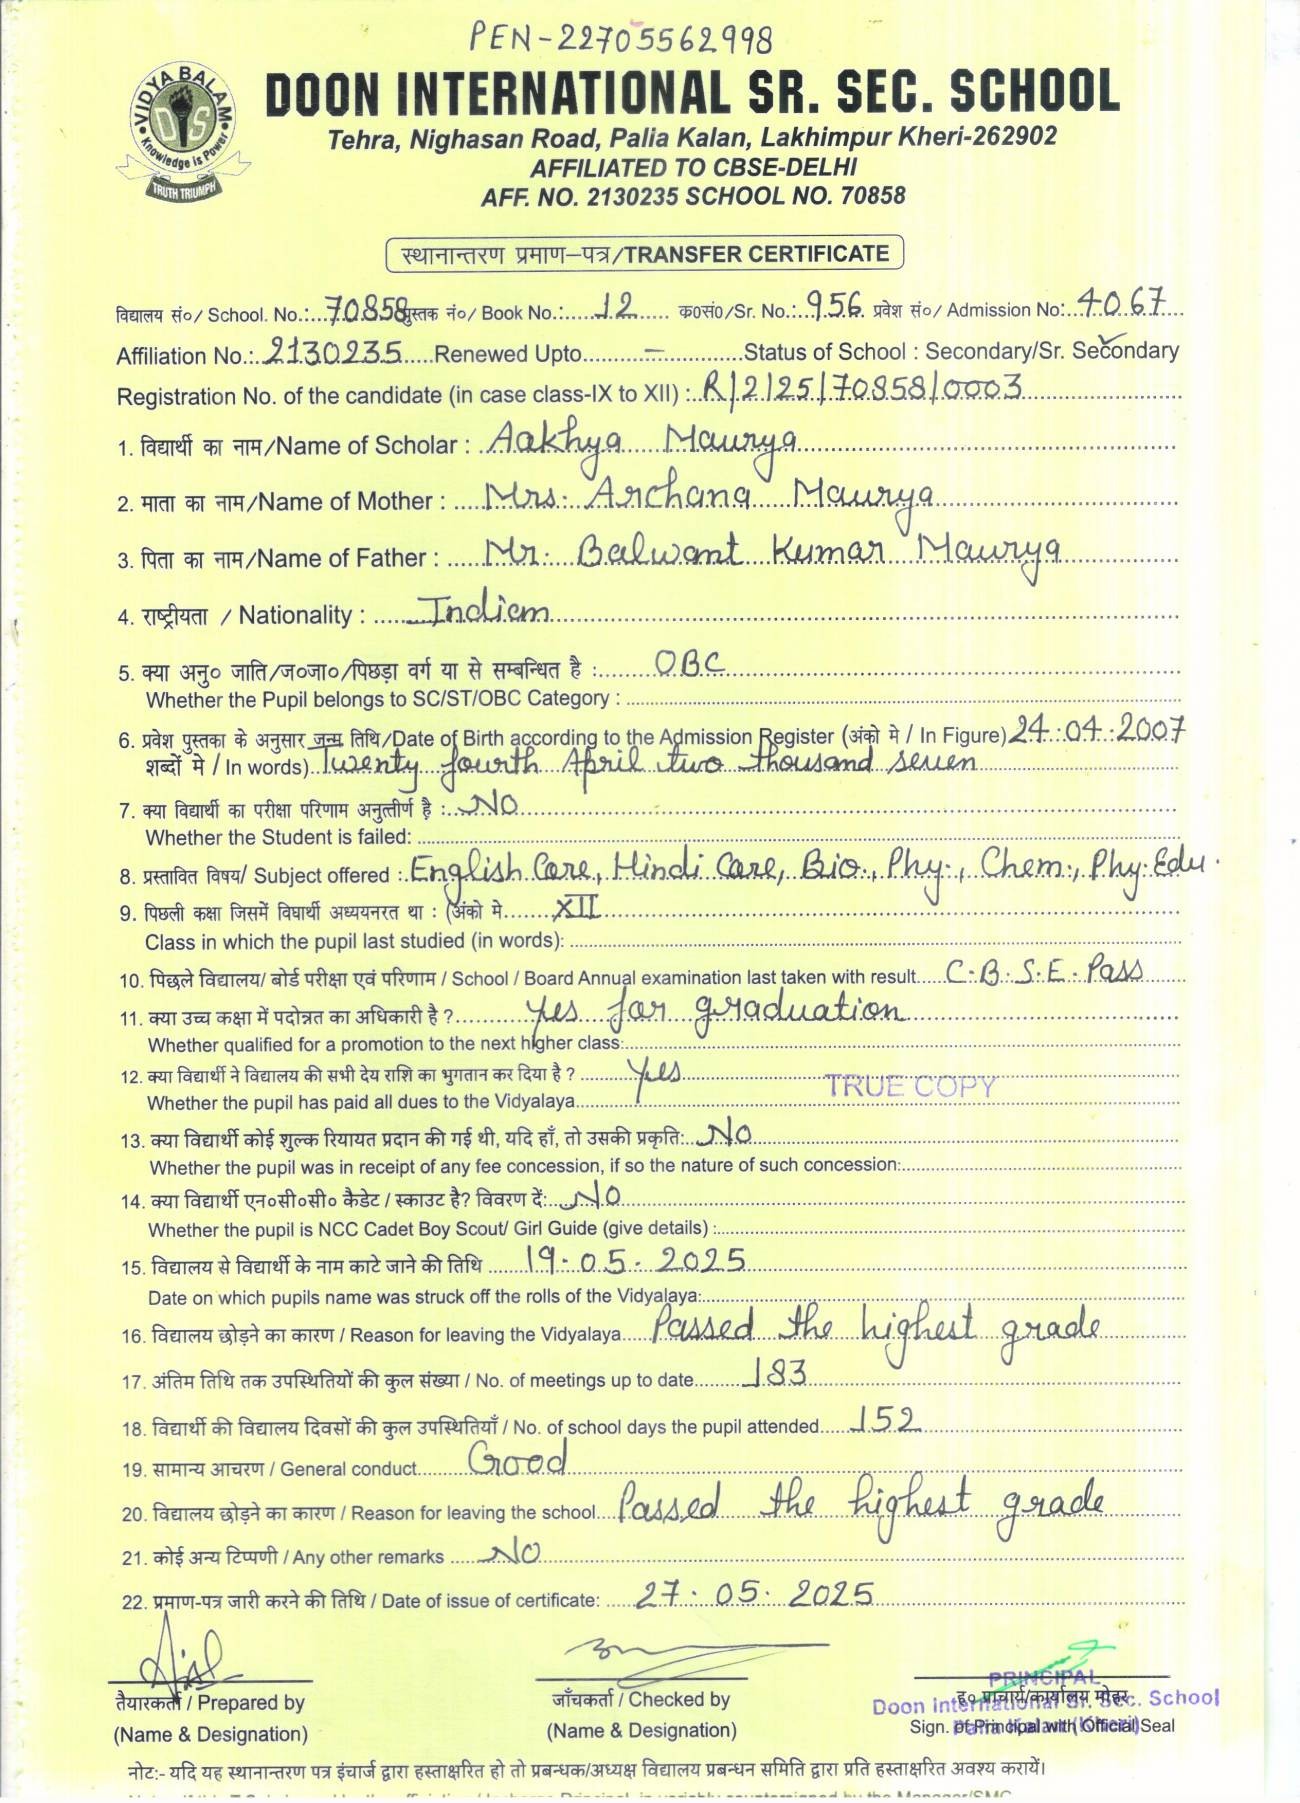 PEN-22705562998
VIDYA BALAM
DIS
Knowledge is Power
TRUTH TRIUMPH
DOON INTERNATIONAL SR. SEC. SCHOOL
Tehra, Nighasan Road, Palia Kalan, Lakhimpur Kheri-262902
AFFILIATED TO CBSE-DELHI
AFF. NO. 2130235 SCHOOL NO. 70858
स्थानान्तरण प्रमाण–पत्र/TRANSFER CERTIFICATE
विद्यालय सं०/ School. No.:...70858 पुस्तक नं०/ Book No.:.....12..... क०सं०/Sr. No.:..956. प्रवेश सं०/ Admission No:..4067....
Affiliation No.:.2130235.....Renewed Upto..........–..........Status of School : Secondary/Sr. Secondary
Registration No. of the candidate (in case class-IX to XII) :..R/2/25/70858/0003
1. विद्यार्थी का नाम/Name of Scholar : Aakhya Maurya
2. माता का नाम/Name of Mother : Mrs. Archana Maurya
3. पिता का नाम/Name of Father : Mr. Balwant Kumar Maurya
4. राष्ट्रीयता / Nationality : Indian
5. क्या अनु० जाति/ज०जा०/पिछड़ा वर्ग या से सम्बन्धित है : OBC
Whether the Pupil belongs to SC/ST/OBC Category :
6. प्रवेश पुस्तका के अनुसार जन्म तिथि/Date of Birth according to the Admission Register (अंको मे / In Figure) 24.04.2007
शब्दों मे / In words) Twenty fourth April two thousand seven
7. क्या विद्यार्थी का परीक्षा परिणाम अनुत्तीर्ण है : NO
Whether the Student is failed:
8. प्रस्तावित विषय/ Subject offered : English Core, Hindi Core, Bio., Phy., Chem., Phy. Edu.
9. पिछली कक्षा जिसमें विघार्थी अध्ययनरत था : (अंको मे XII
Class in which the pupil last studied (in words):
10. पिछले विद्यालय/ बोर्ड परीक्षा एवं परिणाम / School / Board Annual examination last taken with result C.B.S.E. Pass
11. क्या उच्च कक्षा में पदोन्नत का अधिकारी है ? Yes for graduation
Whether qualified for a promotion to the next higher class:
12. क्या विद्यार्थी ने विद्यालय की सभी देय राशि का भुगतान कर दिया है ? Yes
TRUE COPY
Whether the pupil has paid all dues to the Vidyalaya
13. क्या विद्यार्थी कोई शुल्क रियायत प्रदान की गई थी, यदि हाँ, तो उसकी प्रकृति: NO
Whether the pupil was in receipt of any fee concession, if so the nature of such concession:
14. क्या विद्यार्थी एन०सी०सी० कैडेट / स्काउट है? विवरण दें: NO
Whether the pupil is NCC Cadet Boy Scout/ Girl Guide (give details) :
15. विद्यालय से विद्यार्थी के नाम काटे जाने की तिथि 19.05.2025
Date on which pupils name was struck off the rolls of the Vidyalaya:
16. विद्यालय छोड़ने का कारण / Reason for leaving the Vidyalaya Passed the highest grade
17. अंतिम तिथि तक उपस्थितियों की कुल संख्या / No. of meetings up to date 183
18. विद्यार्थी की विद्यालय दिवसों की कुल उपस्थितियाँ / No. of school days the pupil attended 152
19. सामान्य आचरण / General conduct Good
20. विद्यालय छोड़ने का कारण / Reason for leaving the school Passed the highest grade
21. कोई अन्य टिप्पणी / Any other remarks NO
22. प्रमाण-पत्र जारी करने की तिथि / Date of issue of certificate: 27.05.2025
PRINCIPAL
तैयारकर्ता / Prepared by जाँचकर्ता / Checked by ह० प्राचार्य/कार्यालय मोहर
Doon International Sr. Sec. School
(Name & Designation) (Name & Designation) Sign. of Principal with Official Seal
नोट:- यदि यह स्थानान्तरण पत्र इंचार्ज द्वारा हस्ताक्षरित हो तो प्रबन्धक/अध्यक्ष विद्यालय प्रबन्धन समिति द्वारा प्रति हस्ताक्षरित अवश्य करायें।